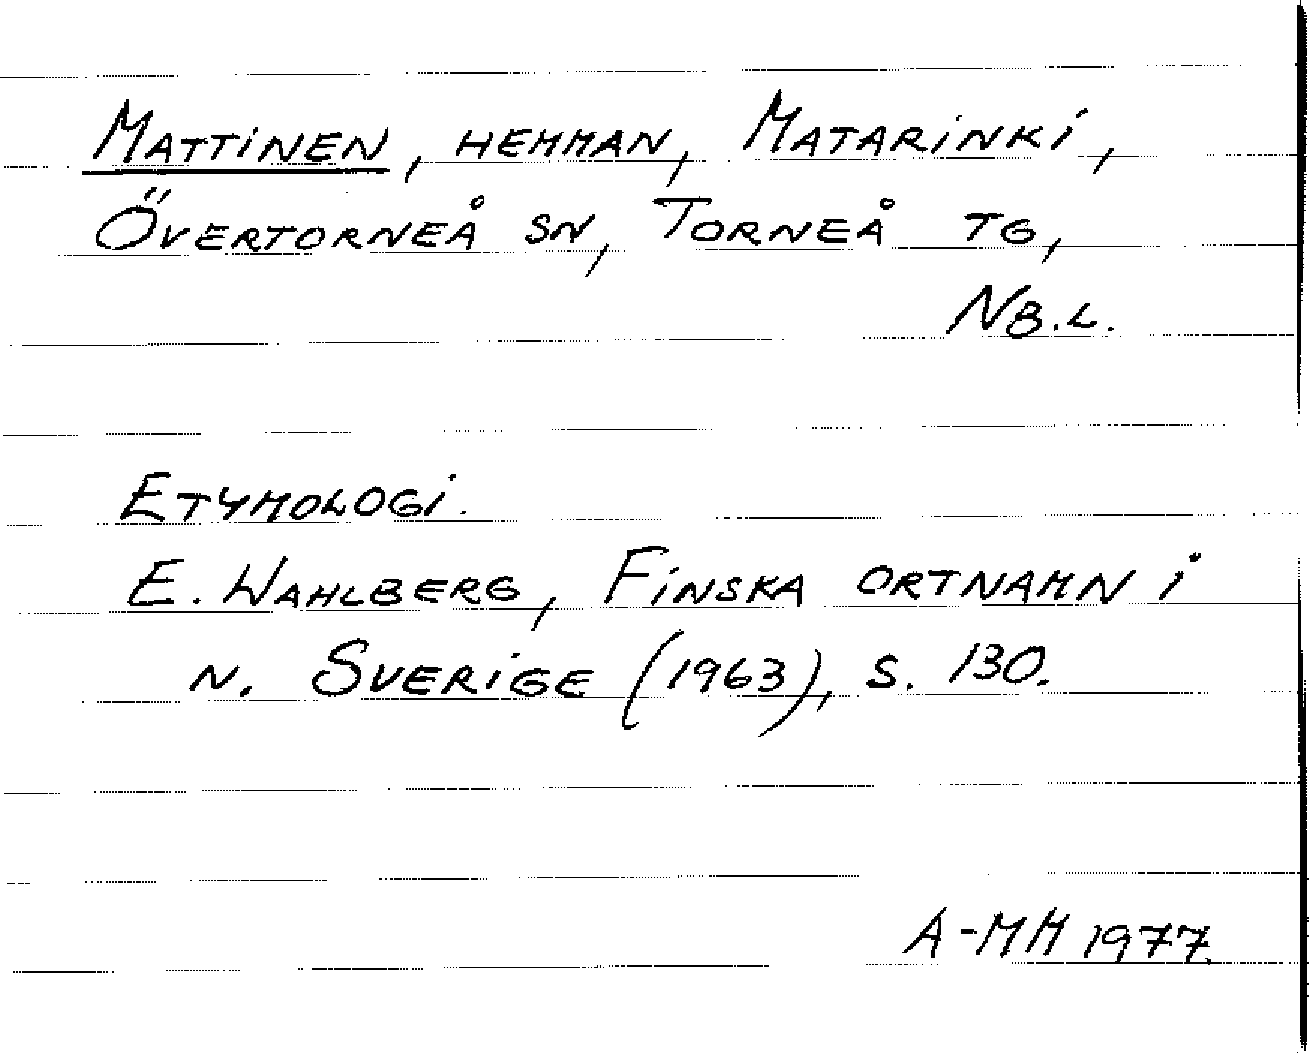 MATTINEN, HEMMAN, MATARINKI,
ÖVERTORNEÅ SN, TORNEÅ TG,
NB.L.
ETYMOLOGI.
E. WAHLBERG, FINSKA ORTNAMN I
N. SVERIGE (1963), S. 130.
A-MM 1977.